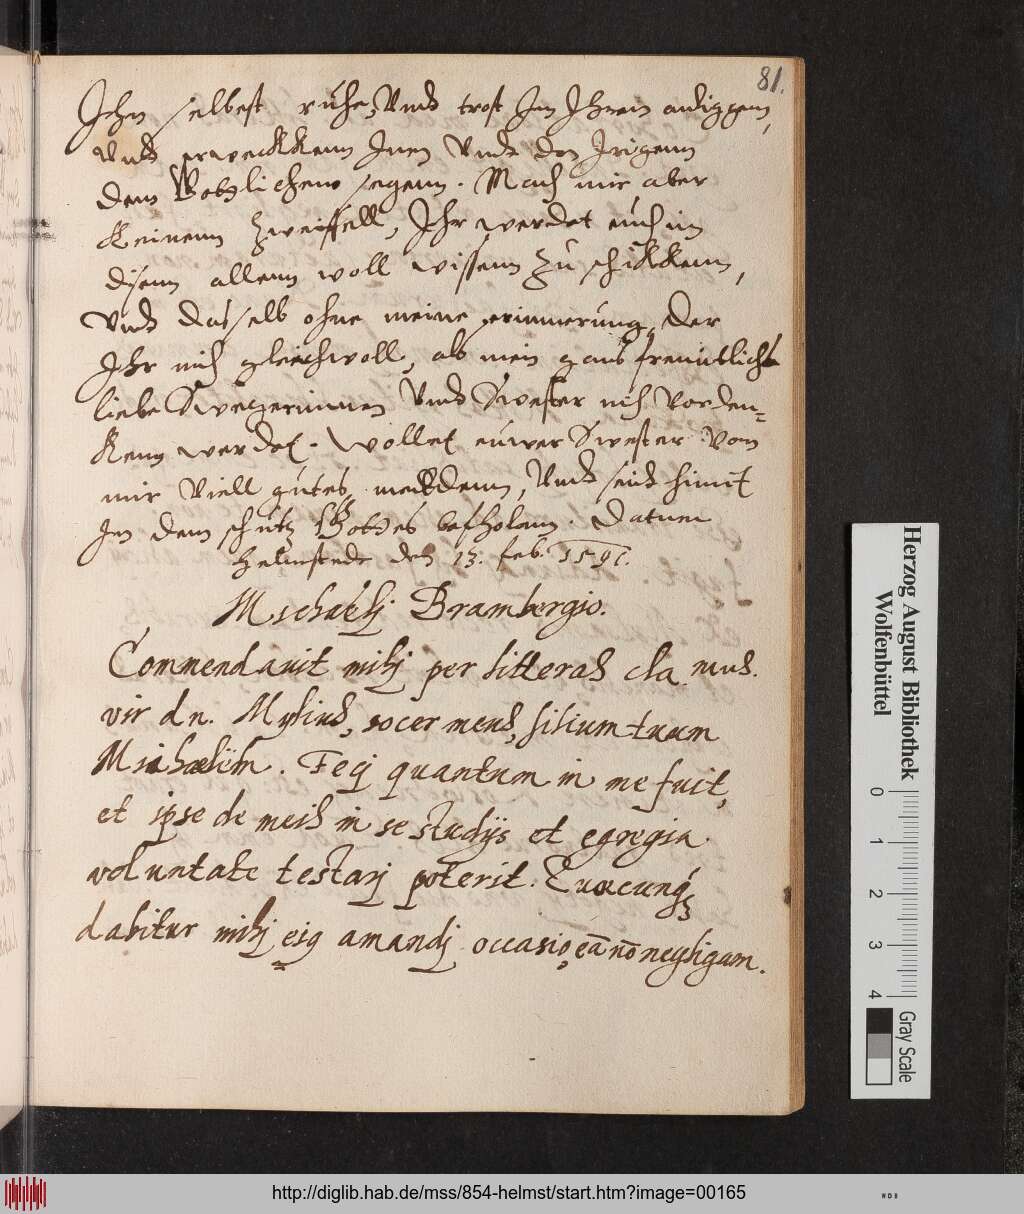 81.
Ihm selbest ruhe, Vnd trost Im Ihrem
Vnd erweckkenn Inen Vnd den Irigenn
dem Gotzlichenn segenn. Mach mir aber
Keinenn Zweiffell, Ihr werdet euch in
disenn allenn woll wissenn zu schikkenn,
Vnd dasselb ohne meine erinnerung, Der
Ihr mich gleichwoll, als mein gans freuntlich
liebe Swegerinnen Vnd Swester nich Vorden=
kenn werdet. Wollet euwer Swester von
mir Viell gutes meldenn, Vnd seid himit
In dem schutz Gottes befholenn. Datum
Helmstede den 13. feb. 1591.
Michaëlj Brambergio.
Commendauit mihj per litteras cla mus.
vir dn. Mylius, socer meus, filium tuum
Michaëlem. Fecj quantum in me fuit,
et ipse de meis in se studijs et egregia
voluntate testarj poterit. Quacunq;
dabitur mihj eiq amandj occasio, eā nō negligam.
Herzog August Bibliothek
Wolfenbüttel
0 1 2 3 4
Gray Scale
http://diglib.hab.de/mss/854-helmst/start.htm?image=00165